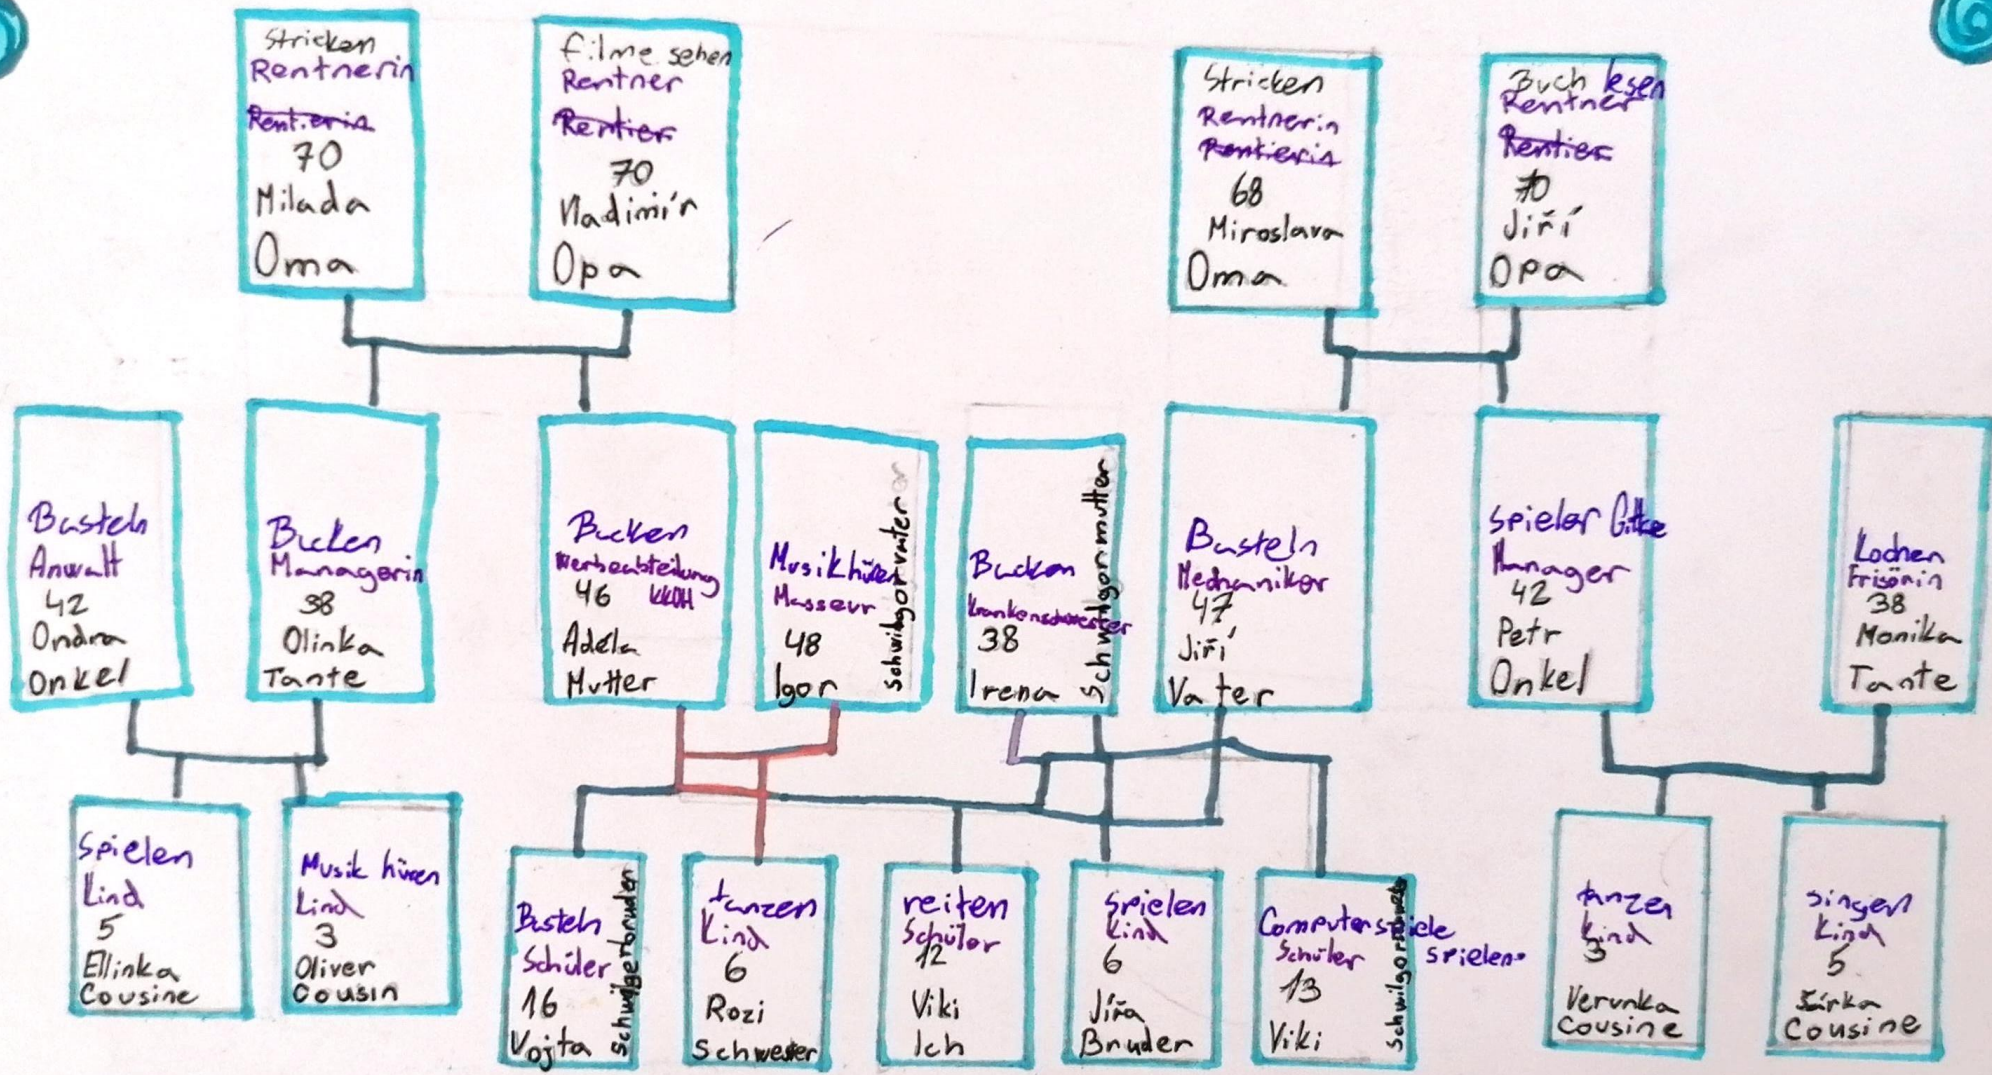 Stricken
Rentnerin
Rentierin
70
Milada
Oma
filme sehen
Rentner
Rentier
70
Vladimír
Opa
Stricken
Rentnerin
Rentierin
68
Miroslava
Oma
Buch lesen
Rentner
Rentier
70
Jiří
Opa
Basteln
Anwalt
42
Ondra
Onkel
Backen
Managerin
38
Olinka
Tante
Backen
Werbeabteilung
46
Adéla
Mutter
Musik hören
Masseur
48
Igor
Backen
Krankenschwester
38
Irena
Basteln
Mechaniker
47
Jiří
Vater
Manager
42
Petr
Onkel
Kochen
Frisörin
38
Monika
Tante
Spielen
Kind
5
Ellinka
Cousine
Musik hören
Kind
3
Oliver
Cousin
Basteln
Schüler
16
Vojta
tanzen
Kind
6
Rozi
Schwester
reiten
Schüler
12
Viki
Ich
spielen
Kind
6
Jíra
Bruder
Computerspiele
spielen
Schüler
13
Viki
tanzen
Kind
3
Verunka
Cousine
singen
Kind
5
Šárka
Cousine